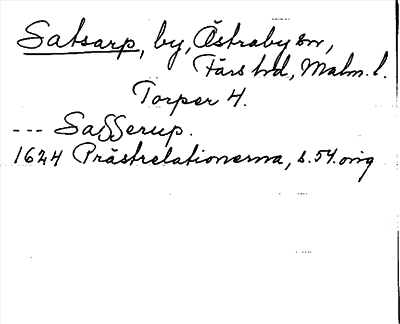 Satsarp, by, Östraby sn,
Färs hd, Malm. l.
Torper 4.
--- Saſſerup.
1624 Prästrelationerna, s. 54. orig